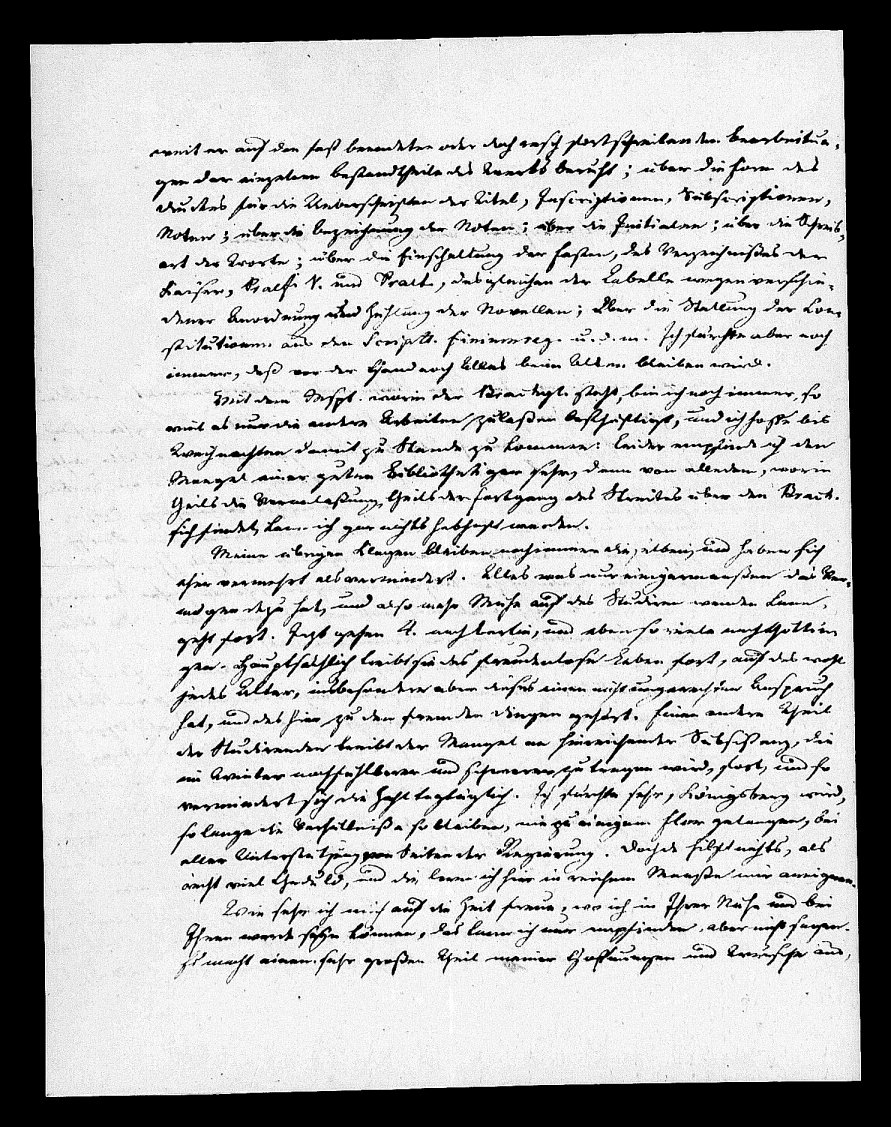 weit er auf den fast beendeten oder doch rasch fortschreitenden Bearbeitun-
gen der einzelnen Bestandtheile des Werks beruht; über die Form des
Druckes für die Ueberschriften der Titel, Inscriptionen, Subscriptionen,
Noten; über die Bezeichnung der Noten; über die Initialen; über die Schreib-
art der Worte; über die Einschaltung der Fasten, des Verzeichnißes der
Kaiser, Präff. V. und Prät., desgleichen der Tabelle wegen verschie-
dener Anordnung und Zählung der Novellen; über die Stellung der Con-
stitutionen aus den Scriptt. finium reg. u. d. m. Ich fürchte aber noch
immer, daß vor der Hand noch Alles beim Alten bleiben wird.
Mit dem Mspt. worin der Brachyl. steht, bin ich noch immer, so
weit es nur die andern Arbeiten zulaßen beschäftigt, und ich hoffe bis
Weihnachten damit zu Stande zu kommen: leider empfinde ich den
Mangel einer guten Bibliothek gar sehr, denn von alledem, worin
theils die Veranlaßung, theils der Fortgang des Streites über den Brach.
sich findet, kann ich gar nichts habhaft werden.
Meine übrigen Klagen bleiben noch immer dieselben, und haben sich
eher vermehrt als vermindert. Alles was nur einigermaaßen das Ver-
mögen dazu hat, und also mehr Mühe auf das Studiren wenden kann,
geht fort. Jezt gehen 4. nach Berlin, und eben so viele nach Göttin
gen. Hauptsächlich treibt sie das freudenlose Leben fort, auf das wohl
jedes Alter, insbesondere aber dieses einen nicht ungerechten Anspruch
hat, und das hier zu den fremden Dingen gehört. Einen andern Theil
der Studirenden treibt der Mangel an hinreichender Subsistenz, die
im Winter noch fühlbarer und schwerer zu tragen wird, fort, und so
vermindert sich die Zahl tagtäglich. Ich fürchte sehr, Königsberg wird,
so lange die Verhältniße so bleiben, nie zu einigem Flor gelangen, bei
aller Unterstützung von Seiten der Regierung. Doch da hilft nichts, als
recht viel Geduld, und die lerne ich hier in reichem Maaße mir aneignen.
Wie sehr ich mich auf die Zeit freue, wo ich in Ihrer Nähe und bei
Ihnen werde sein können, das kann ich nur empfinden, aber nicht sagen.
Es macht einen sehr großen Theil meiner Hoffnungen und Wünsche aus,